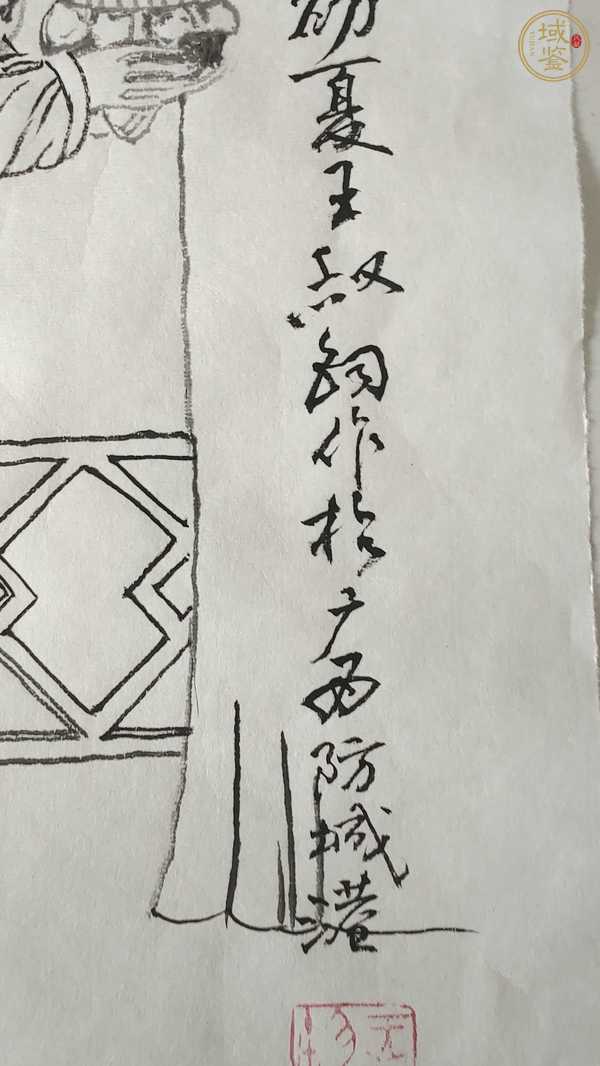 初夏王叔鈞作於广西防城港
域鉴